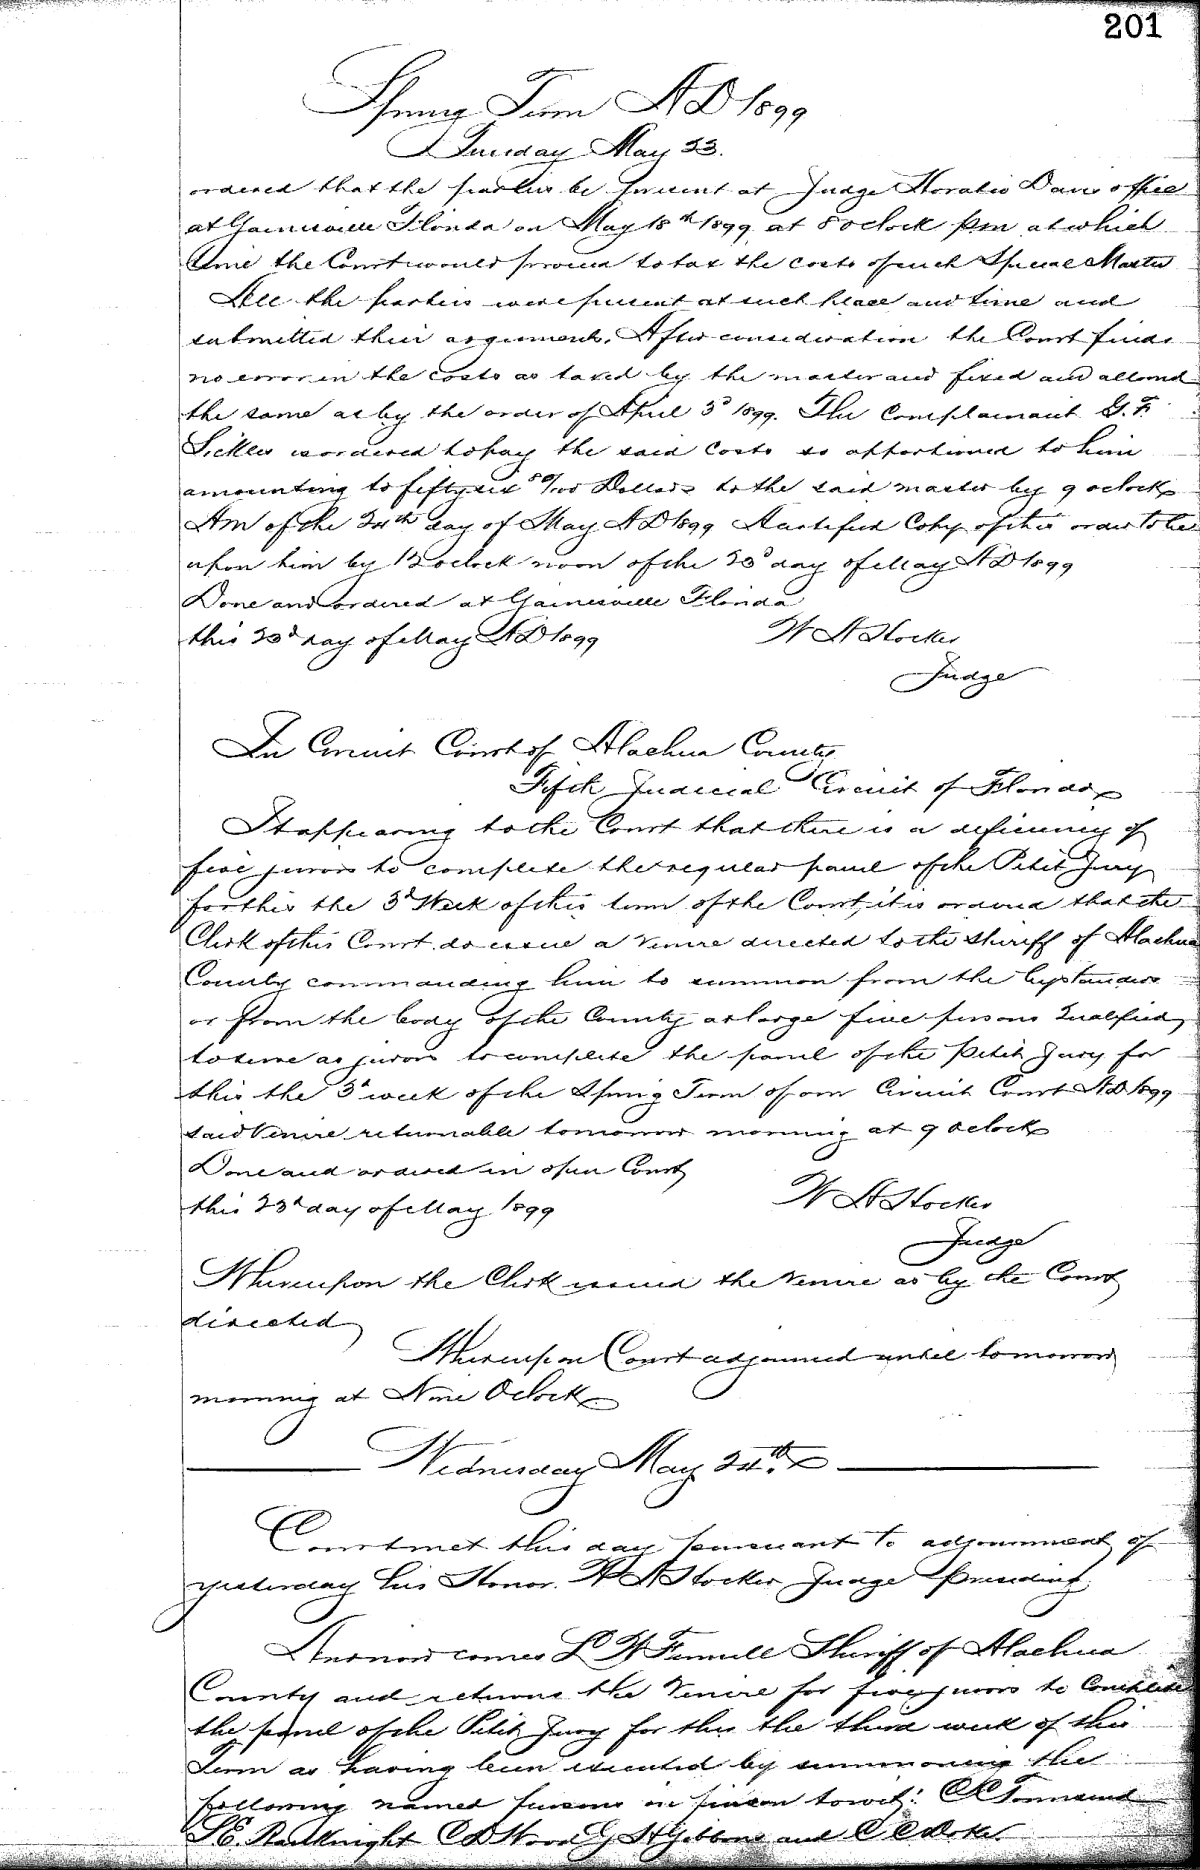 201
Spring Term AD 1899
Tuesday May 23.
ordered that the parties be present at Judge Horatio Davis office
at Gainesville Florida on May 18th 1899 at 8 oclock pm at which
time the Court would proceed to tax the costs of such Special Master
All the parties were present at such place and time and
submitted their arguments. After consideration the Court finds
no error in the costs as taxed by the master and fixed and allowed
the same as by the order of April 3d 1899. The Complainant G. F.
Sickles is ordered to pay the said costs so apportioned to him
amounting to fifty six /100 Dollars to the said master by 9 oclock
AM of the 24th day of May AD 1899 A certified Copy of this order to be
upon him by 12 oclock noon of the 23d day of May AD 1899
Done and ordered at Gainesville Florida
this 23d day of May AD 1899 W A Hocker
Judge
In Circuit Court of Alachua County
Fifth Judicial Circuit of Florida
It appearing to the Court that there is a deficiency of
five jurors to complete the regular panel of the Petit Jury
for this the 3d Week of this term of the Court, it is ordered that the
Clerk of this Court do issue a venire directed to the Sheriff of Alachua
County commanding him to summon from the bystanders
or from the body of the County at large five persons Qualified
to serve as jurors to complete the panel of the Petit Jury for
this the 3d week of the Spring Term of our Circuit Court AD 1899
said Venire returnable tomorrow morning at 9 oclock
Done and ordered in open Court
this 23d day of May 1899 W A Hocker
Judge
Whereupon the Clerk issued the venire as by the Court
directed
Whereupon Court adjourned until tomorrow
morning at Nine Oclock
Wednesday May 24th
Court met this day pursuant to adjournment of
yesterday his Honor. W A Hocker Judge Presiding.
And now comes L W Fennell Sheriff of Alachua
County and returns the Venire for five jurors to Complete
the panel of the Petit Jury for this the third week of this
Term as having been executed by summoning the
following named persons in person towit: Townsend
C D Wood G H Gibbons and